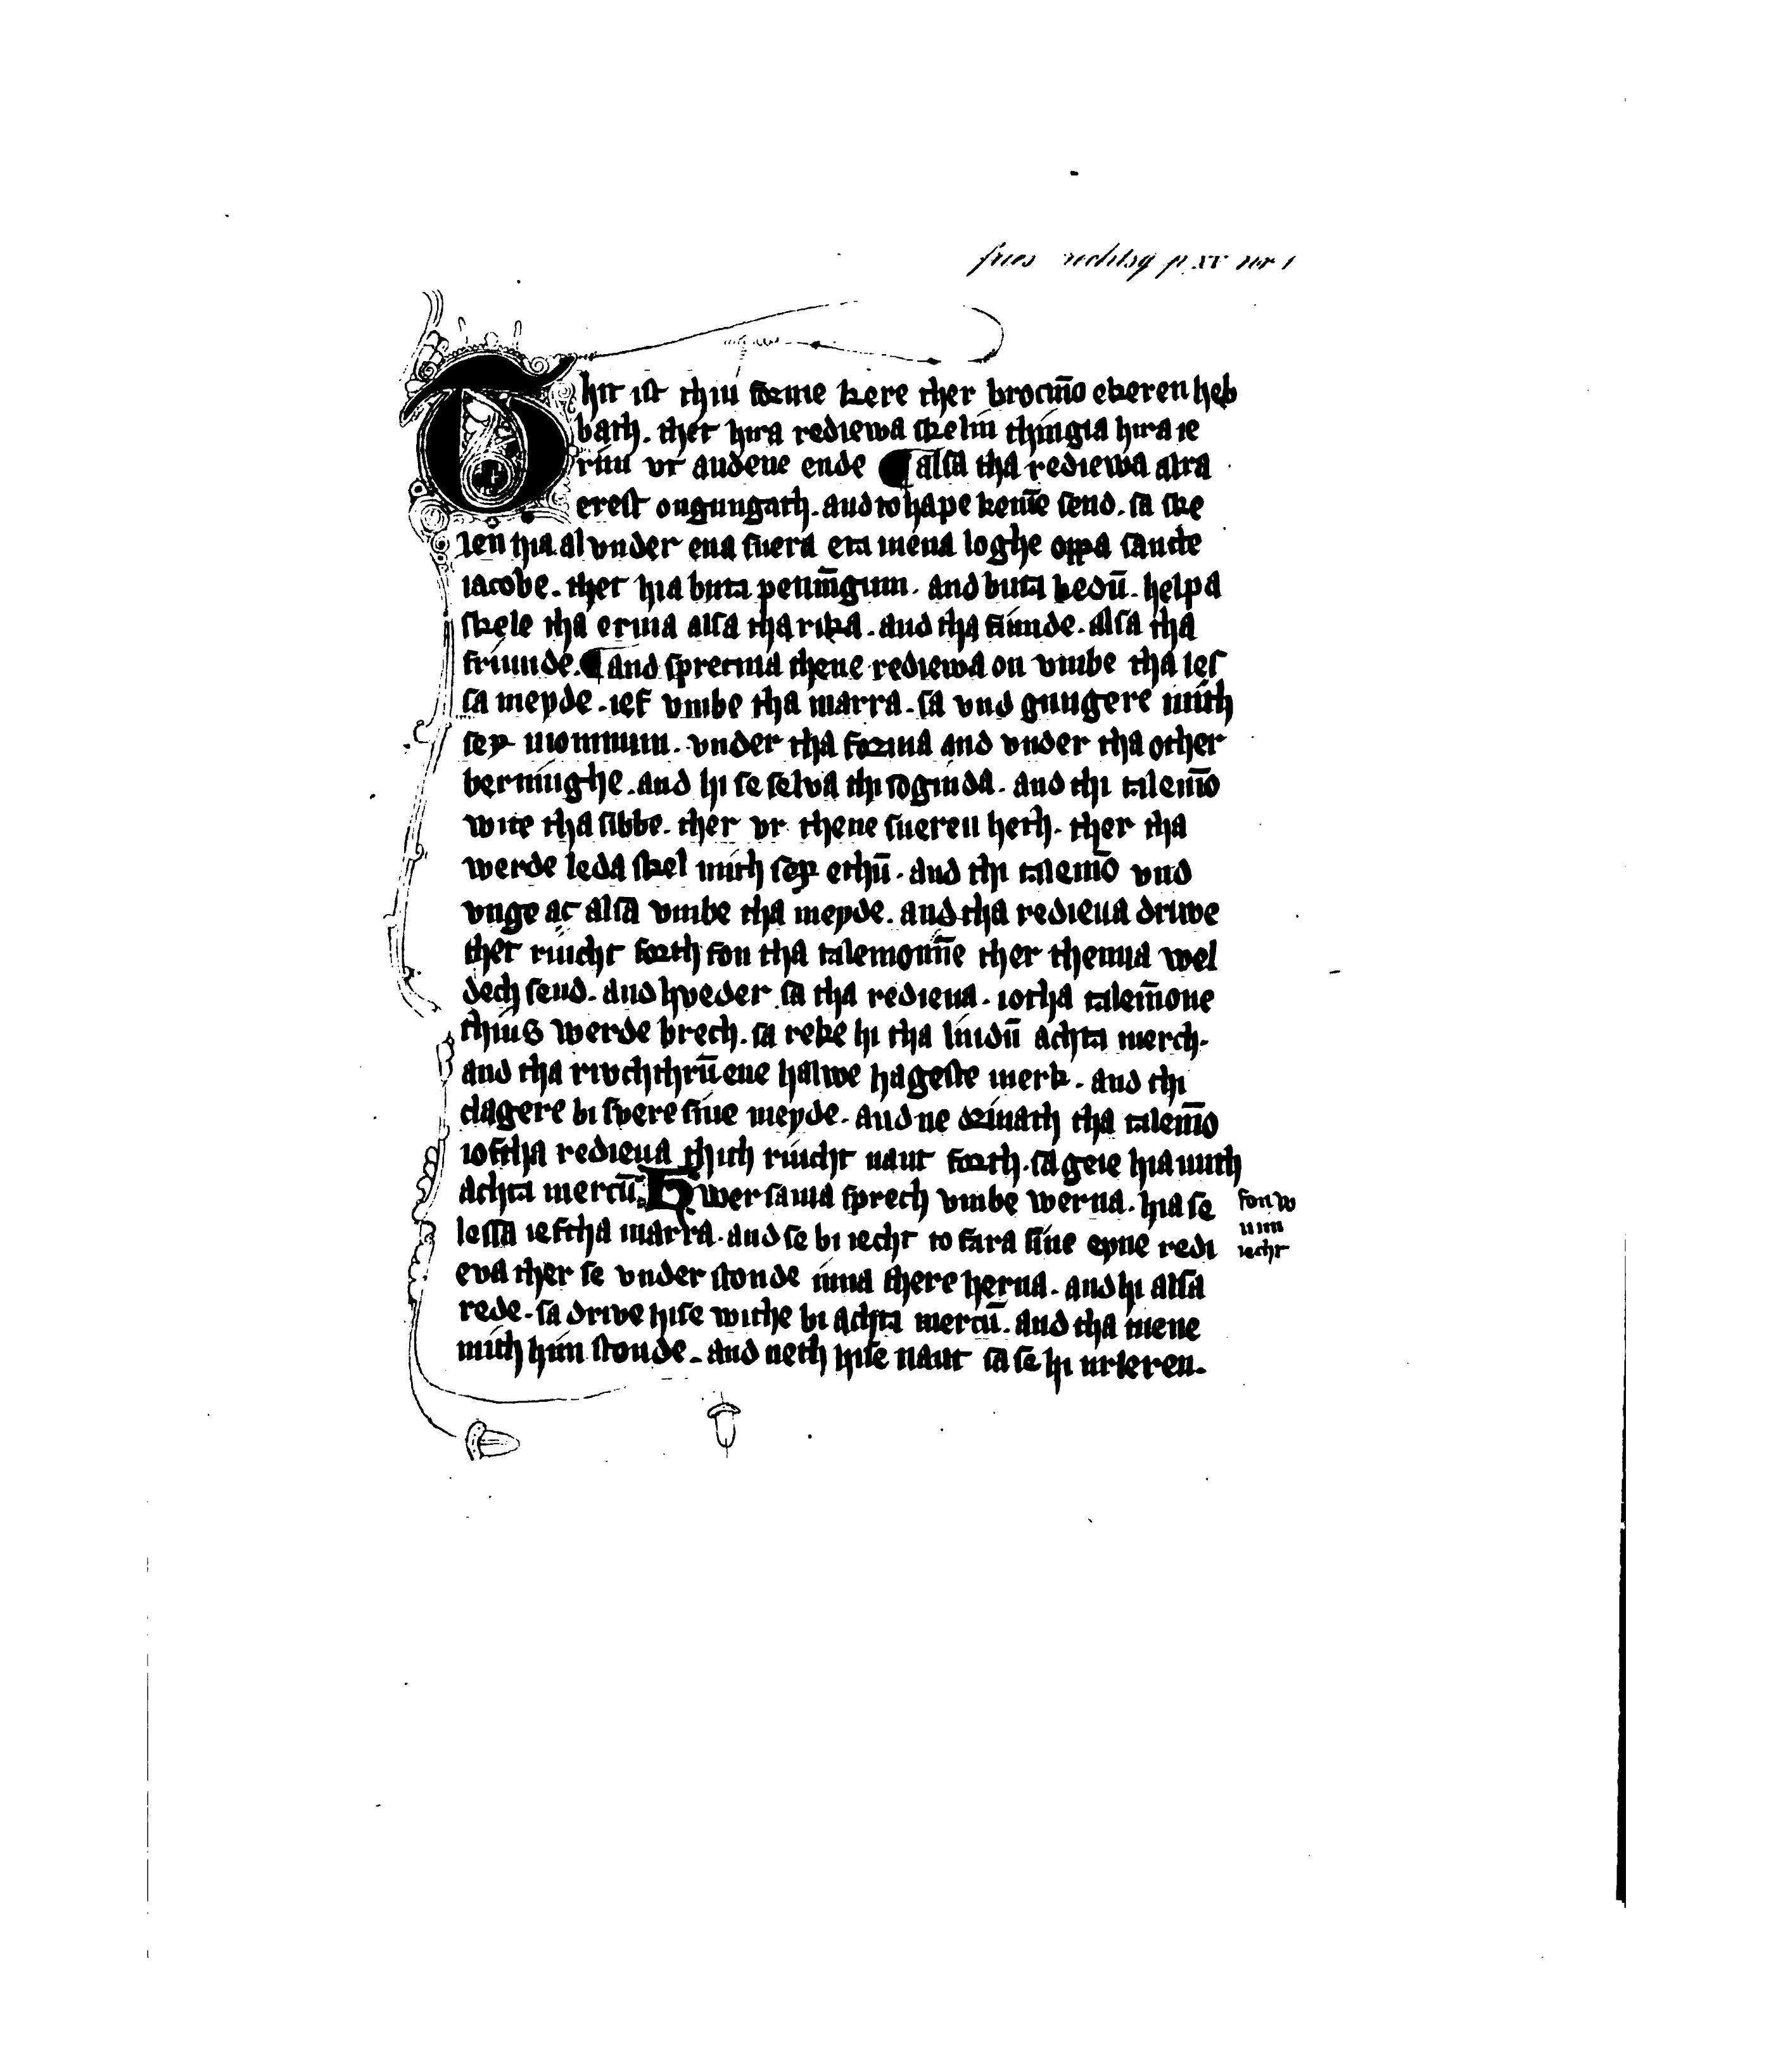 fries rechtsq p. xv nr 1
Thit ist thiu forme kere ther brocm̄o ekeren heb
bath. thet hwa rediewa skelin thingia hwa ie
rim ut andene ende ¶ alsa tha rediewa alra
erest ongungath. and to hape kem̄e send. sa ske
len hia al under ena suera era mena loghe oppa sancte
iacobe. thet hia buta penni̅gum. and buta bedū. helpa
skele tha erma alsa tha rika. and tha fiunde. alsa tha
friunde. ¶ and sprecma thene rediewa on umbe tha les
sa meyde. ief umbe tha marra. sa und gungere mith
sex monnum. under tha forma and under tha other
berninghe. and hi se selva thi soginda. and thi talem̄o
wite tha sibbe. ther ur thene sueren heth. ther tha
werde leda skel mith sex ethū. and thi talem̄o und
unge ac alsa umbe tha meyde. and tha redieua driwe
thet riucht forth fon tha talemonn̄e ther thenna wel
dech send. and hveder sa tha redieua. iotha talem̄one
thius werde brech. sa reke hi tha liudū achta merch.
and tha riwchthrū ene halwe hageste merk. and thi
clagere bi suere sine meyde. and ne drinath tha talem̄o
ioftha redieua thith riucht naut forth. sa geie hia mith
achta mercū. Hwersama sprech umbe werna. hia se
lessa ieftha marra. and se bi iecht to fara sine eyne redi
eva ther se under stonde inna there herna. and hi alsa
rede. sa drive hise withe bi achta mercū. and tha mene
mith him stonde. and neth hise naut sa se hi urleren.
fon w
iecht